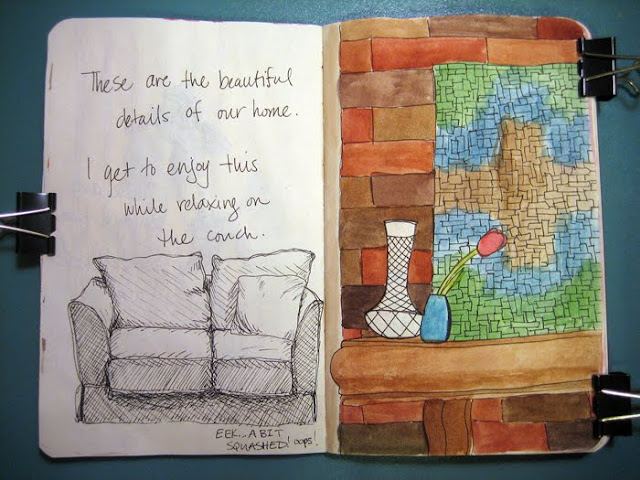 These are the beautiful
details of our home.
I get to enjoy this
while relaxing on
the couch.
EEK...A BIT
SQUASHED! oops!